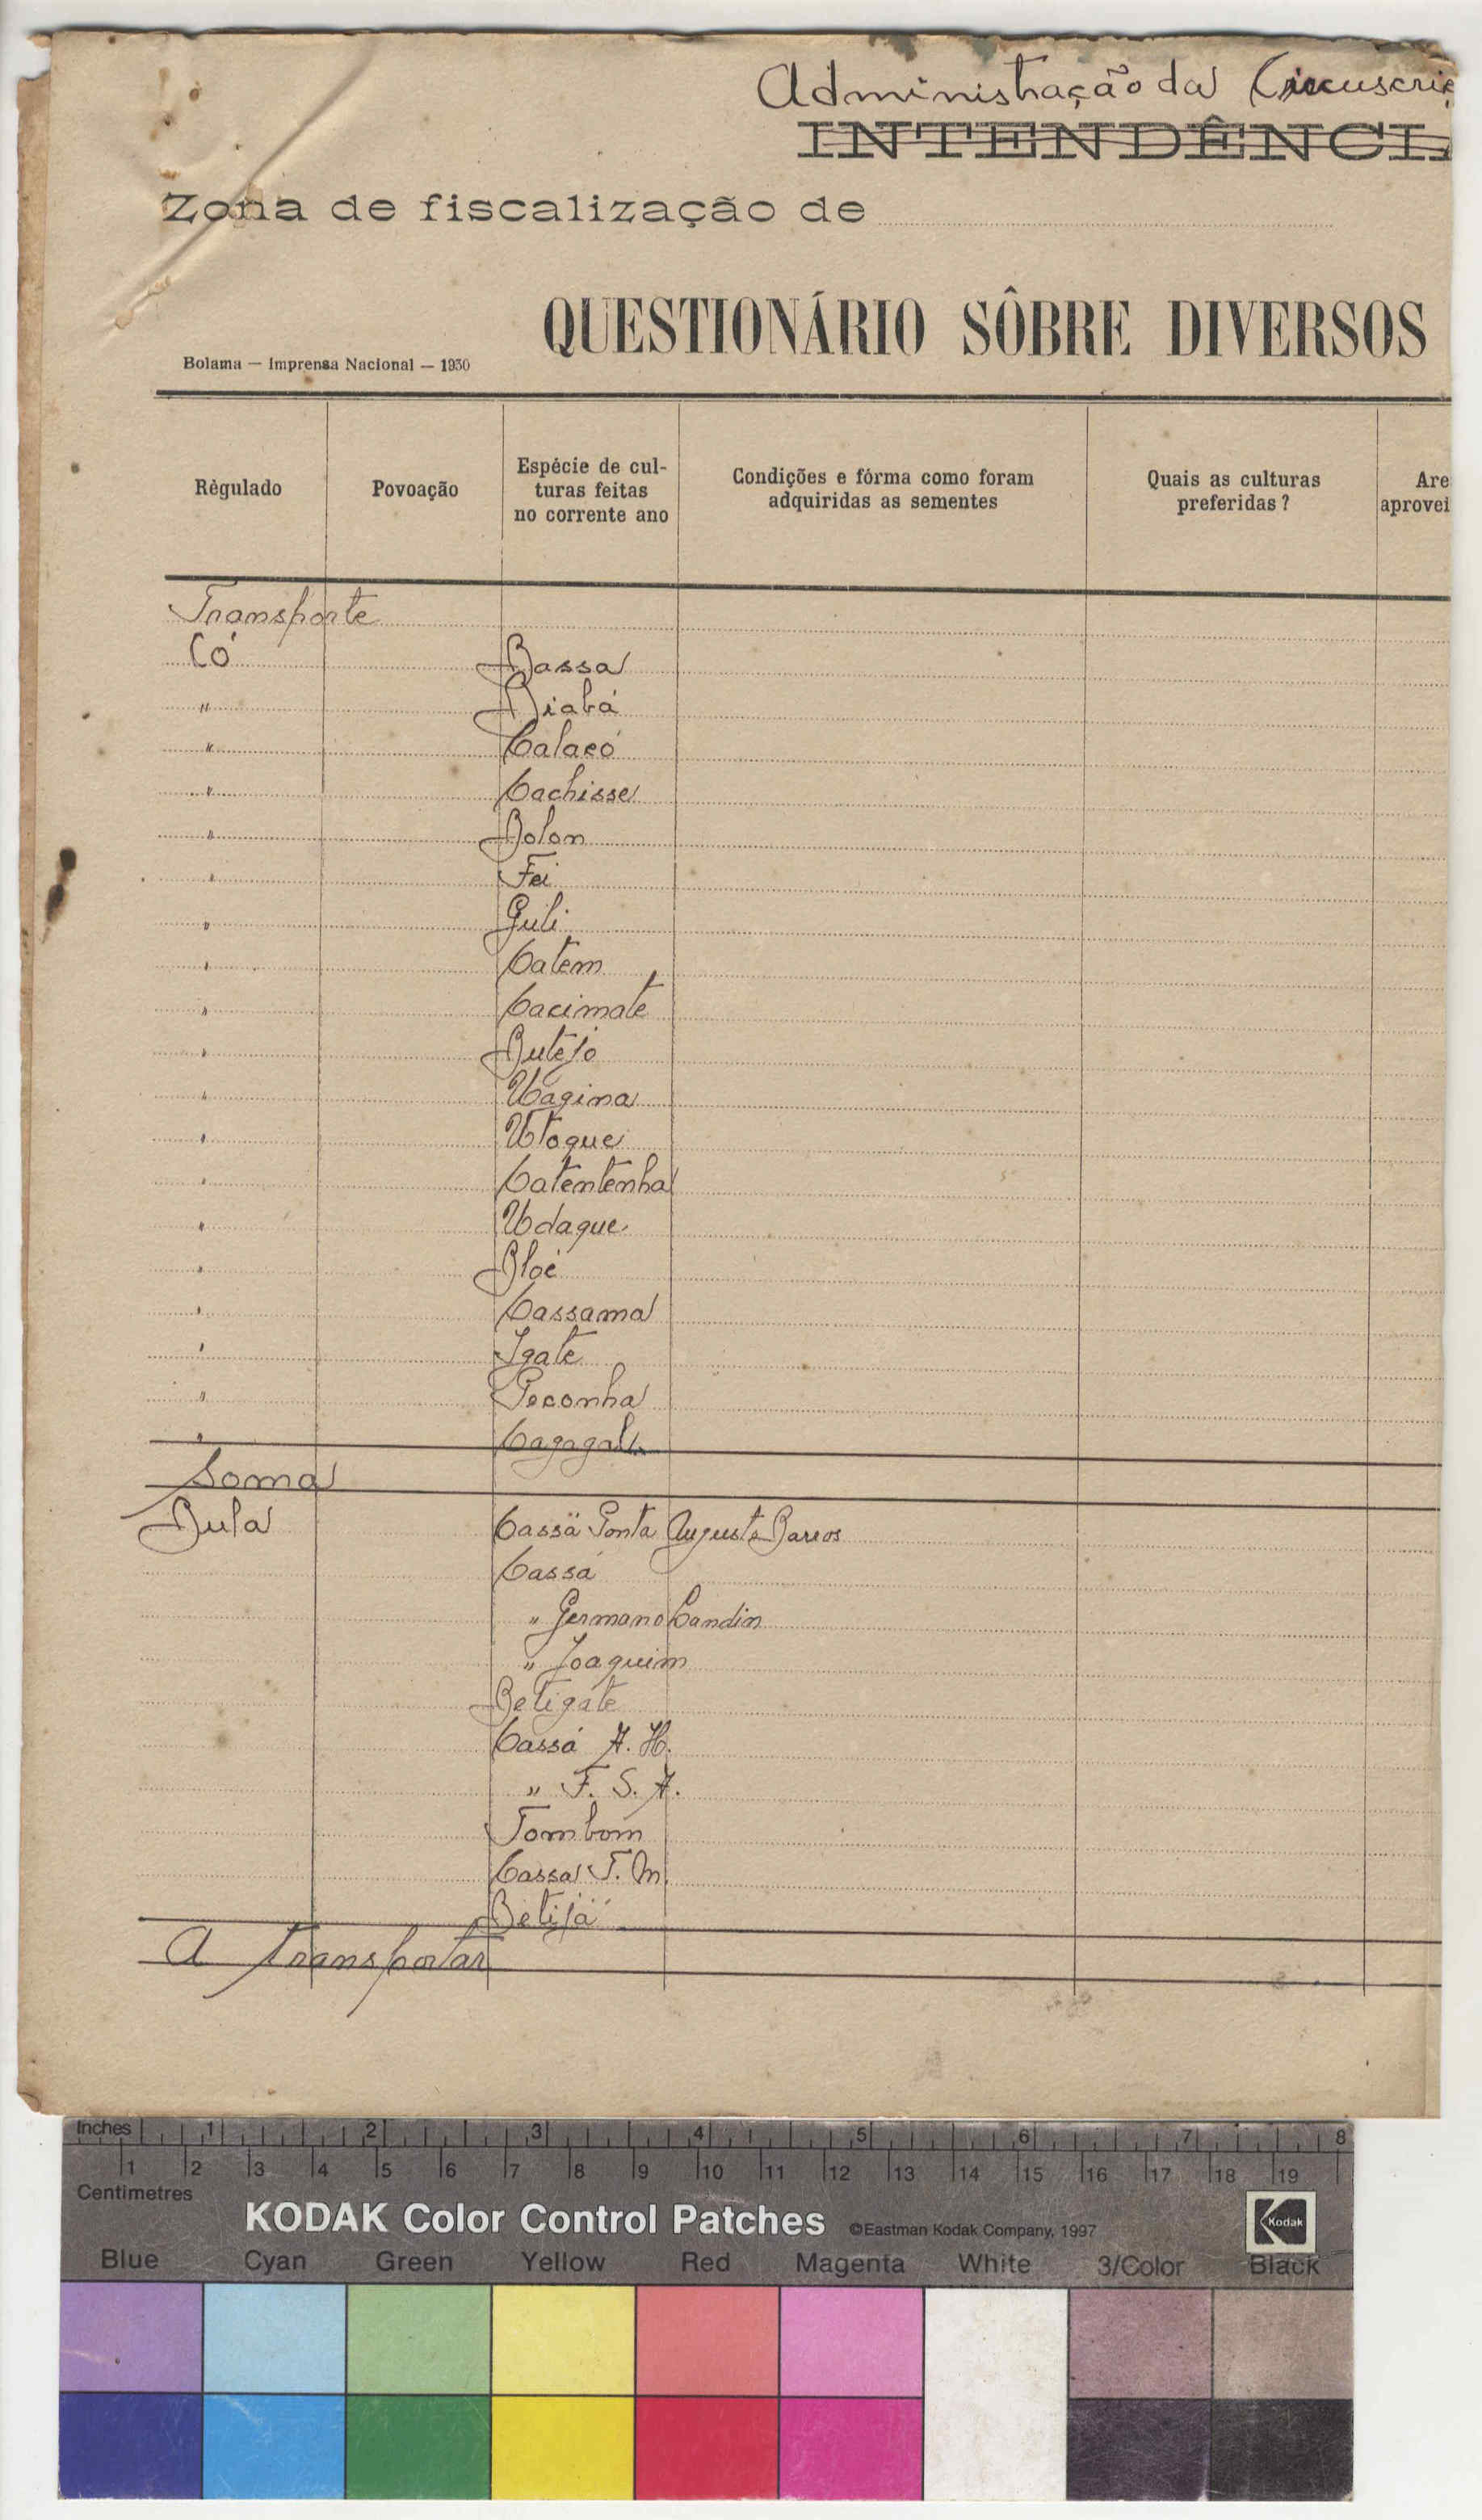 Administração da Circuscri
INTENDÊNCI
Zona de fiscalização de
QUESTIONÁRIO SÔBRE DIVERSOS
Bolama — Imprensa Nacional — 1930
Règulado
Povoação
Espécie de cul-
turas feitas
no corrente ano
Condições e fórma como foram
adquiridas as sementes
Quais as culturas
preferidas?
Are
aprovei
Transporte
Có Bassa
" Biabá
" Calacó
" Cachisse
" Bolon
" Fei
" Guli
" Catem
" Cacimate
" Butêjo
" Uagina
" Utoque
" Catentenha
" Udaque
" Bloé
" Cassama
" Igate
" Peconha
"
Soma
Bula Cassä Ponta Augusto Barros
Cassá
" Germano Candin
" Joaquim
Betigate
Cassá A. H.
" F. S. A.
Tombom
Cassa T. M.
Betijá
A transportar
Inches 1 2 3 4 5 6 7 8
1 2 3 4 5 6 7 8 9 10 11 12 13 14 15 16 17 18 19
Centimetres
KODAK Color Control Patches ©Eastman Kodak Company, 1997 Kodak
Blue Cyan Green Yellow Red Magenta White 3/Color Black